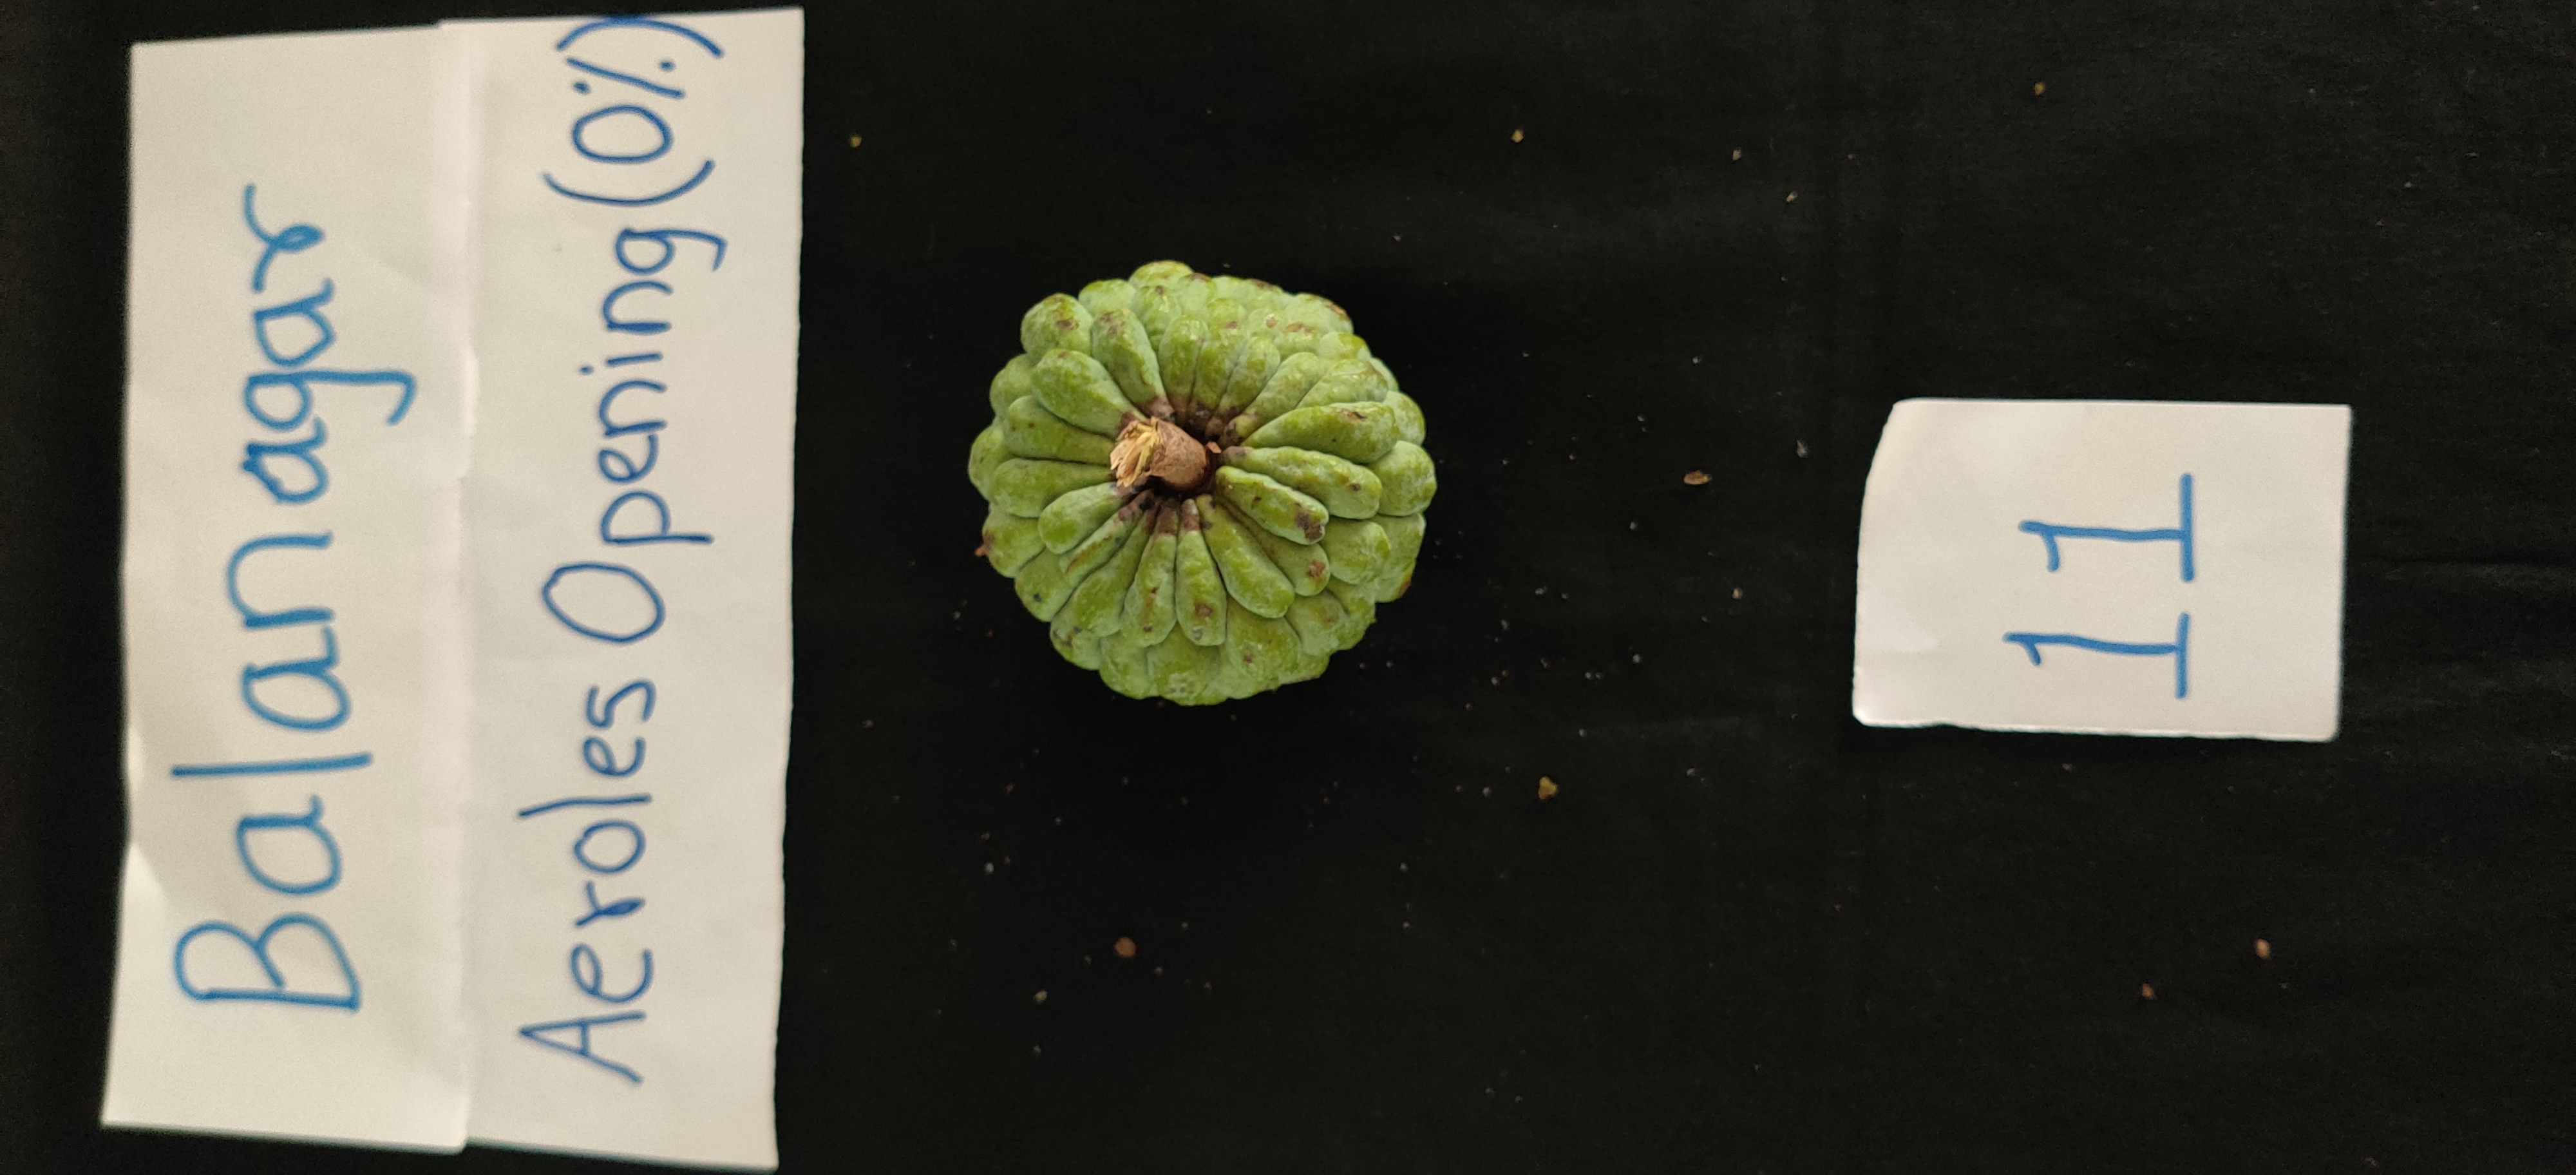 Balanagar
Aeroles Opening (0%)
11